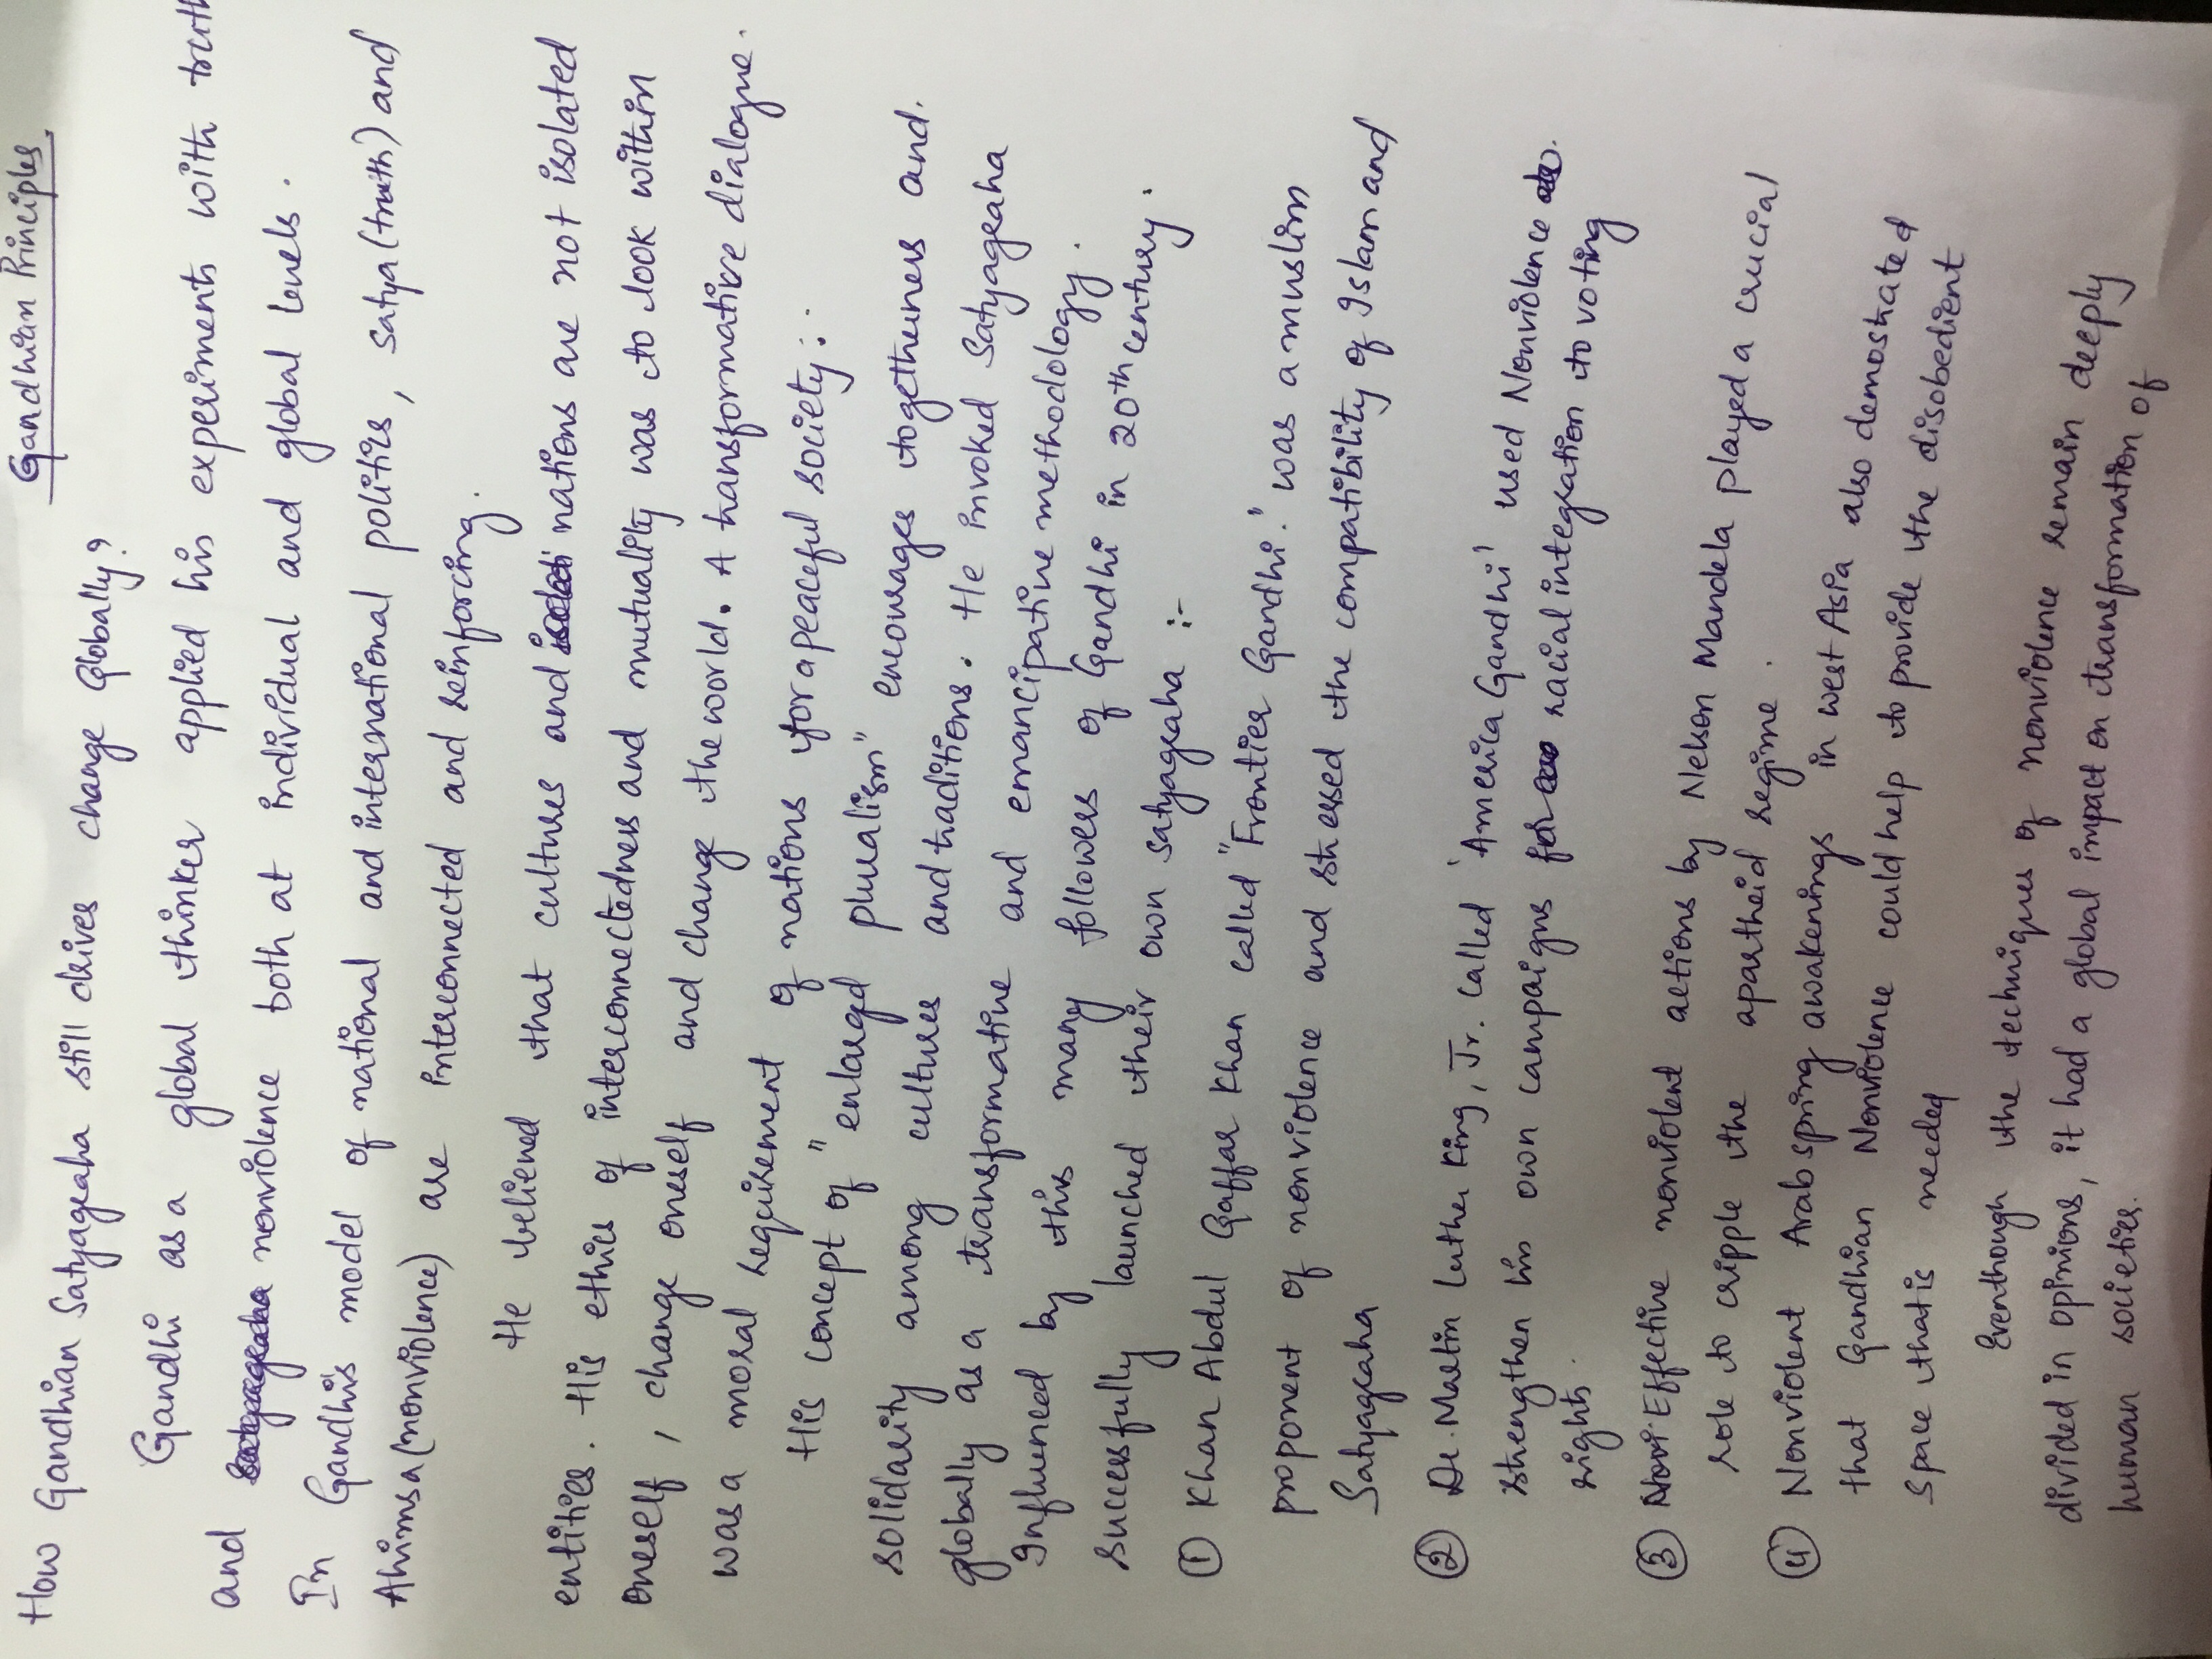 Gandhian Principles
How Gandhian Satyagraha still drives change Globally?
Gandhi as a global thinker applied his experiment with truth
and nonviolence both at individual and global levels.
In Gandhi's model of national and international politics, satya (truth) and
Ahimsa (nonviolence) are interconnected and reinforcing.
He believed that cultures and nations are not isolated
entities. His ethics of interconnectedness and mutuality was to look within
oneself, change oneself and change the world. A transformative dialogue.
was a moral requirement of nations for a peaceful society.
His concept of "enlarged pluralism" encourages togetherness and.
solidarity among cultures and traditions. He invoked Satyagraha
globally as a transformative and emancipative methodology.
Influenced by this many followers of Gandhi in 20th century.
successfully launched their own satyagraha :-
① Khan Abdul Gaffar Khan called "Frontier Gandhi." was a muslim
proponent of nonviolence and stressed the compatibility of Islam and
Satyagraha
② Dr. Martin Luther King, Jr. called 'America Gandhi' used Nonviolence
strengthen his own campaigns for racial integration to voting
rights.
③ Effective nonviolent actions by Nelson Mandela played a crucial
role to cripple the apartheid regime.
④ Nonviolent Arab spring awakenings in west Asia also demostrated
that Gandhian Nonviolence could help to provide the disobedient
space that is needed
Eventhough the techniques of nonviolence remain deeply
divided in opinions, it had a global impact on transformation of
human societies.